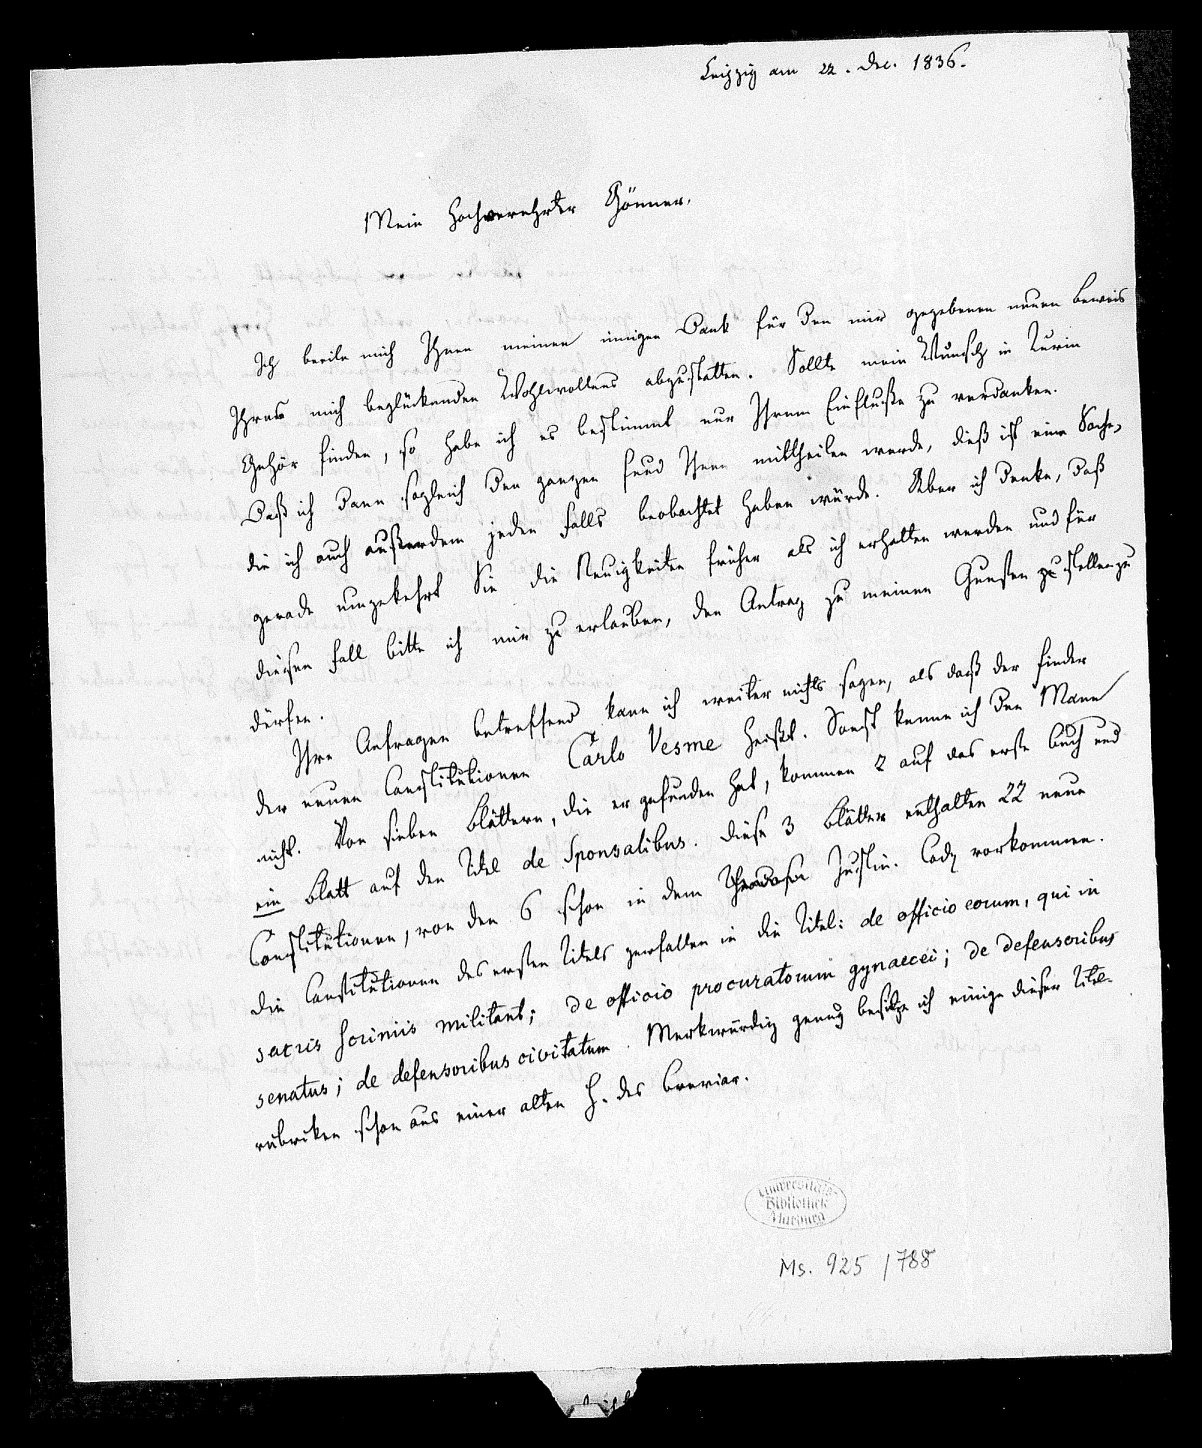 Leipzig am 22. Dec. 1836.
Mein hochverehrter Gönner,
Ich beeile mich Ihnen meinen innigen Dank für den mir gegebenen neuen Beweis
Ihres mich beglückenden Wohlwollens abzustatten. Sollte mein Wunsch in Turin
Gehör finden, so habe ich es bestimmt nur Ihrem Einfluße zu verdanken.
Daß ich dann sogleich den ganzen Fund Ihnen mittheilen werde, dieß ist eine Sache,
die ich auch außerdem jeden Falls beobachtet haben würde. Aber ich denke, daß
gerade umgekehrt Sie die Neuigkeiten früher als ich erhalten werden und für
diesen Fall bitte ich mir zu erlauben, den Antrag zu meinen Gunsten zu stellen zu
dürfen.
Ihre Anfragen betreffend kann ich weiter nichts sagen, als daß der Finder
der neuen Constitutionen Carlo Vesme heißt. Sonst kenne ich den Mann
nicht. Von sieben Blättern, die er gefunden hat, kommen 2 auf das erste Buch und
ein Blatt auf den Titel de Sponsalibus. Diese 3 Blätter enthalten 22 neue
Constitutionen, von den 6 schon in dem Justin. Cod. vorkommen.
Die Constitutionen des ersten Titels zerfallen in die Titel: de officio eorum, qui in
sacris scriniis militant; de officio procuratorum gynaecei; de defensoribus
senatus; de defensoribus civitatum. Merkwürdig genug besitze ich einige dieser Titel-
rubriken schon aus einer alten H. des Breviar.
Universitäts-
Bibliothek
Marburg
Ms. 925 / 788